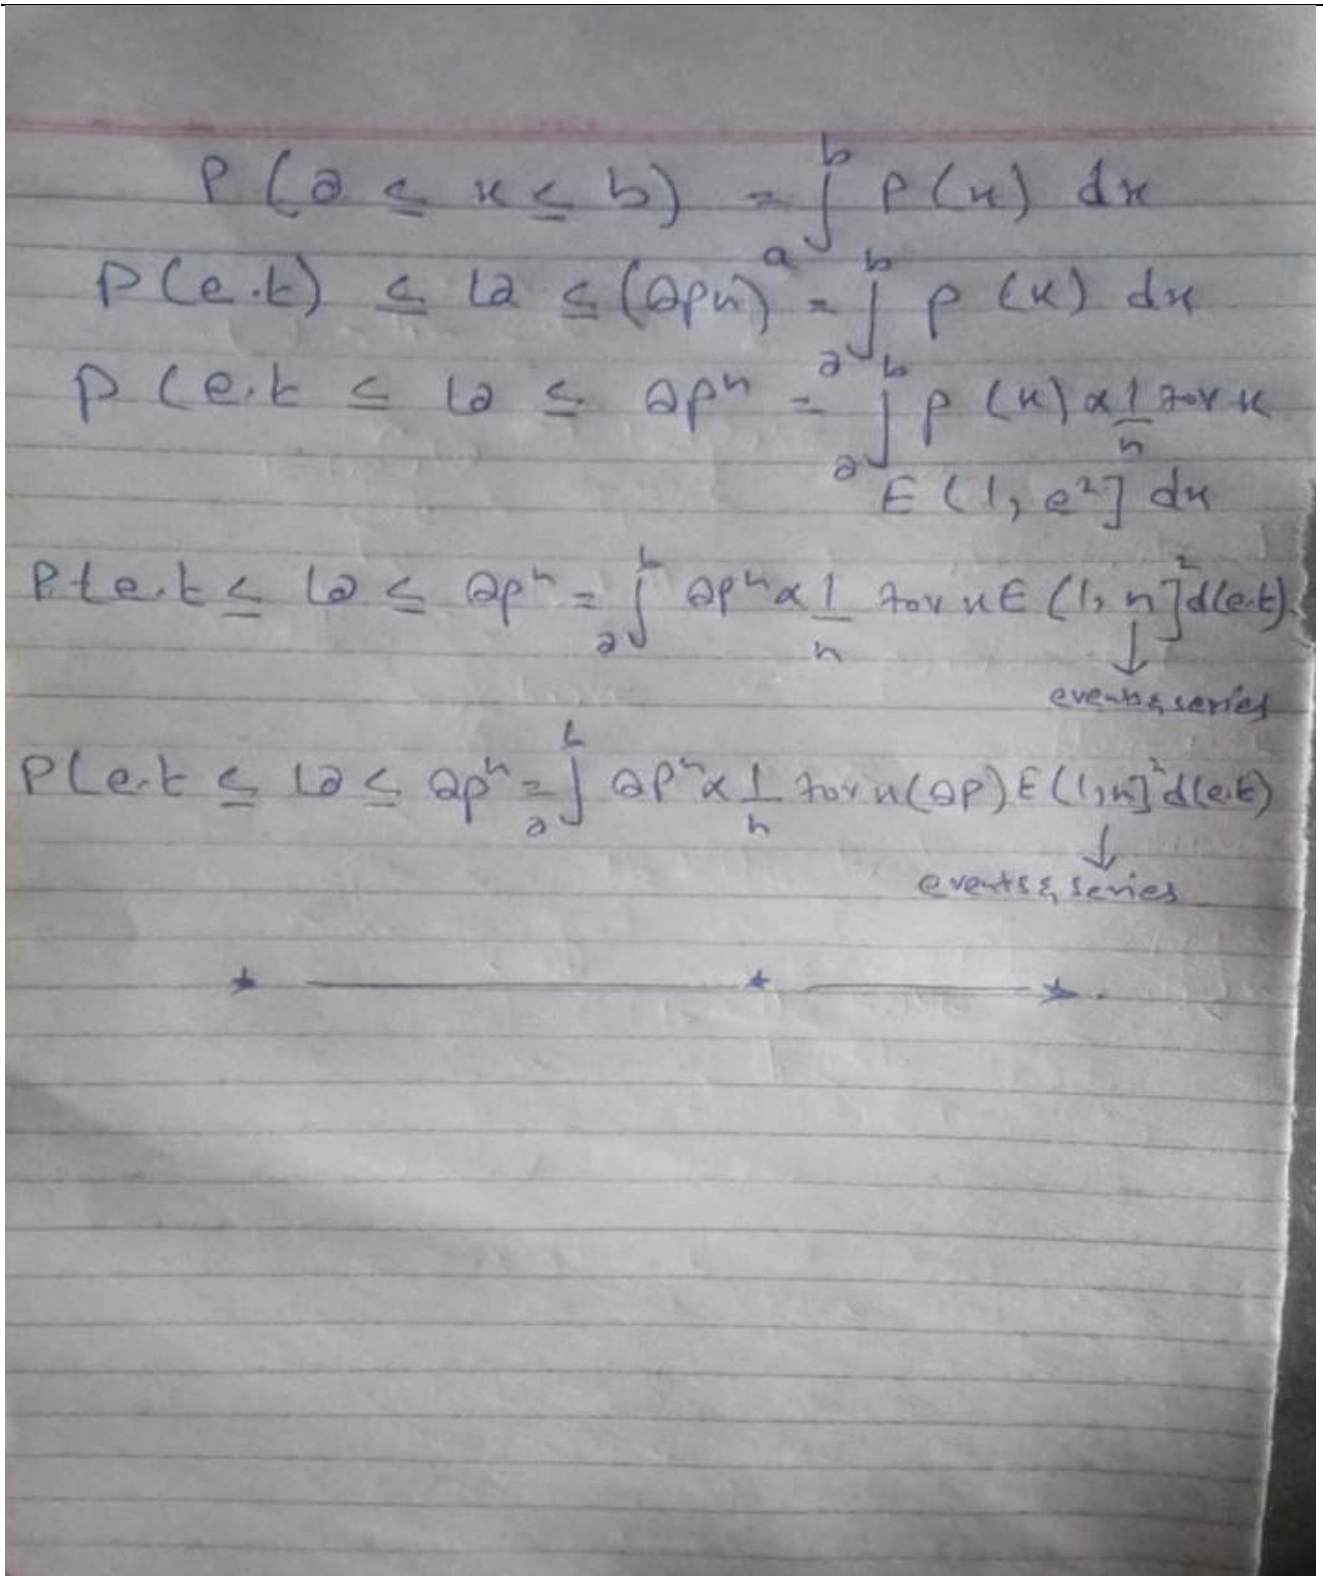 P (a ≤ x ≤ b) = ∫ₐᵇ P(x) dx
P(e.t) ≤ la ≤ (apn) = ∫ₐᵇ p (x) dx
P (e.t ≤ la ≤ apⁿ = ∫ₐᵇ p (x) α 1/n for x
E (1, e²] dx
P(e.t ≤ la ≤ apⁿ = ∫ₐᵇ apⁿ α 1/n for x E (1, n]² d(e.t)
↓
events & series
P(e.t ≤ la ≤ apⁿ = ∫ₐᵇ apⁿ α 1/n for x (ap) E (1, n]² d(e.t)
↓
events & series